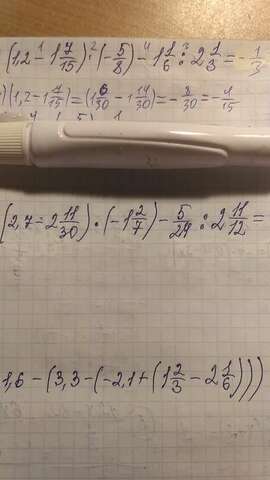 (1,2 - 1 7/15) : (-5/8) - 1 1/6 : 2 1/3 = -1/3
1) (1,2 - 1 7/15) = (1 6/30 - 1 14/30) = -8/30 = -4/15
(2,7 - 2 11/30) · (-1 2/7) - 5/24 : 2 11/12 =
1,6 - (3,3 - (-2,1 + (1 2/3 - 2 1/6)))